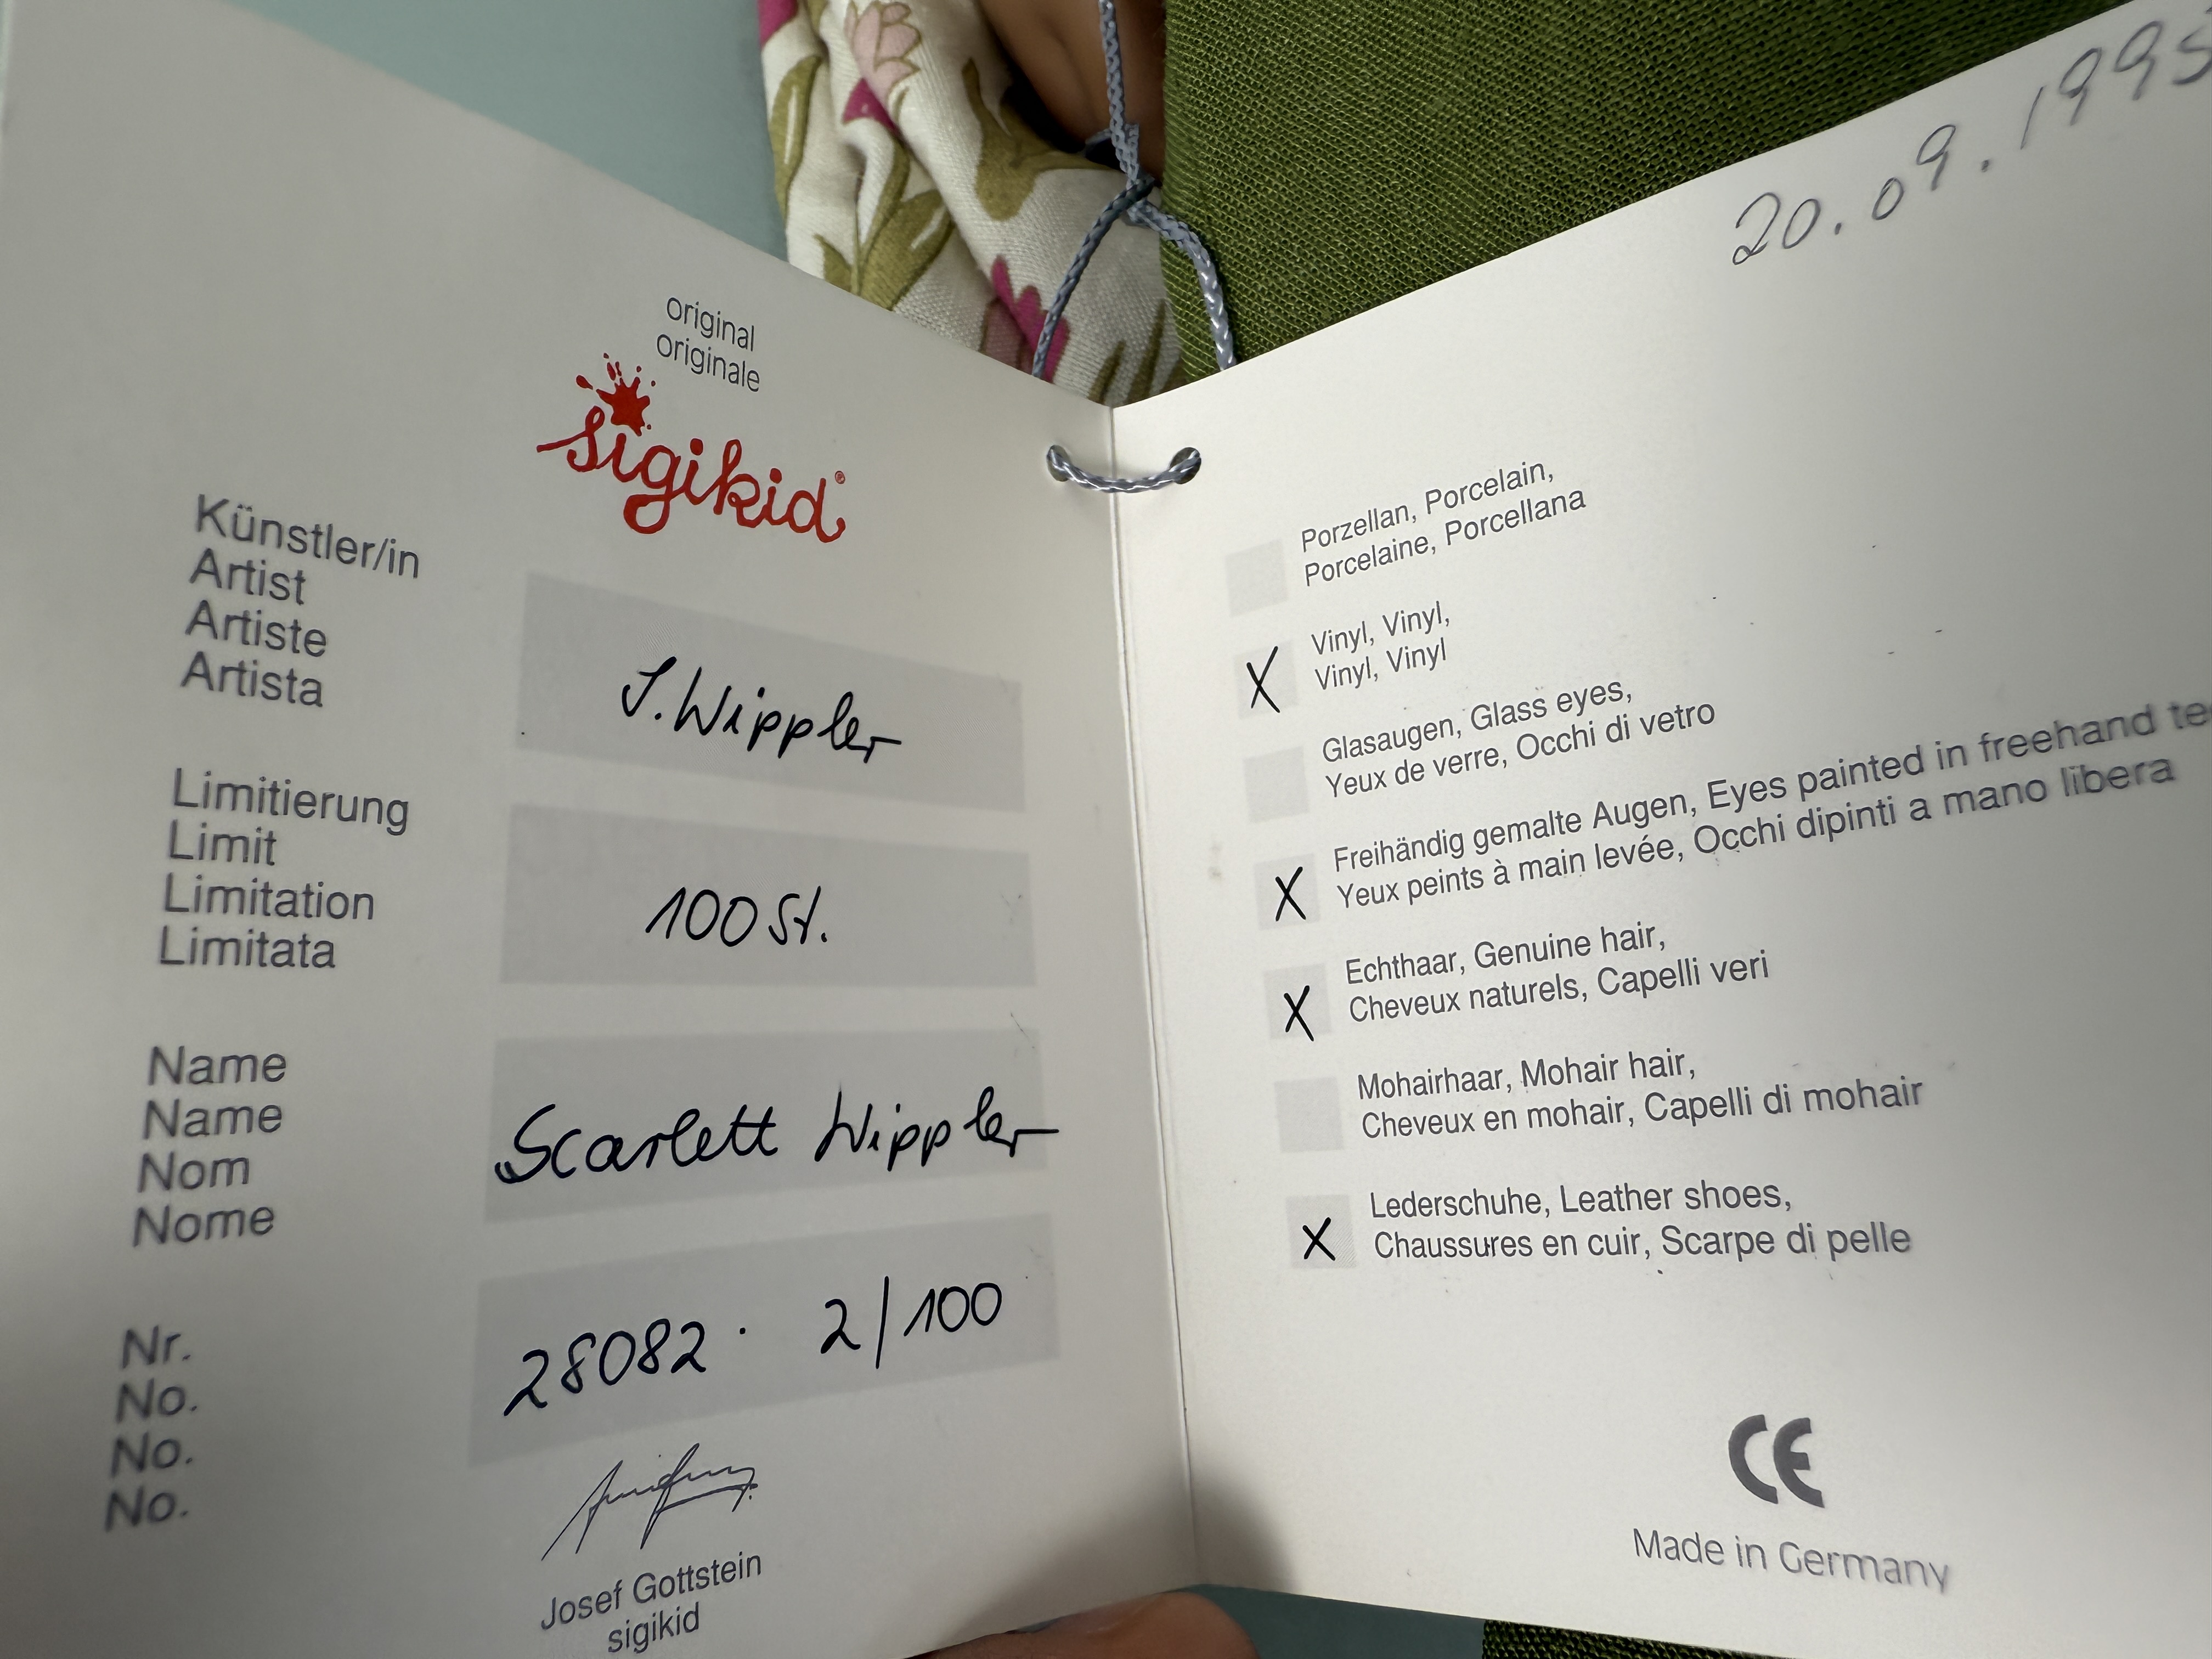 original
originale
sigikid®
Künstler/in
Artist
Artiste
Artista
J. Wippler
Limitierung
Limit
Limitation
Limitata
100 St.
Name
Name
Nom
Nome
Scarlett Wippler
Nr.
No.
No.
No.
28082 · 2/100
Josef Gottstein
sigikid
20.09.1995
Porzellan, Porcelain,
Porcelaine, Porcellana
X Vinyl, Vinyl,
Vinyl, Vinyl
Glasaugen, Glass eyes,
Yeux de verre, Occhi di vetro
X Freihändig gemalte Augen, Eyes painted in freehand
Yeux peints à main levée, Occhi dipinti a mano libera
X Echthaar, Genuine hair,
Cheveux naturels, Capelli veri
Mohairhaar, Mohair hair,
Cheveux en mohair, Capelli di mohair
X Lederschuhe, Leather shoes,
Chaussures en cuir, Scarpe di pelle
CE
Made in Germany